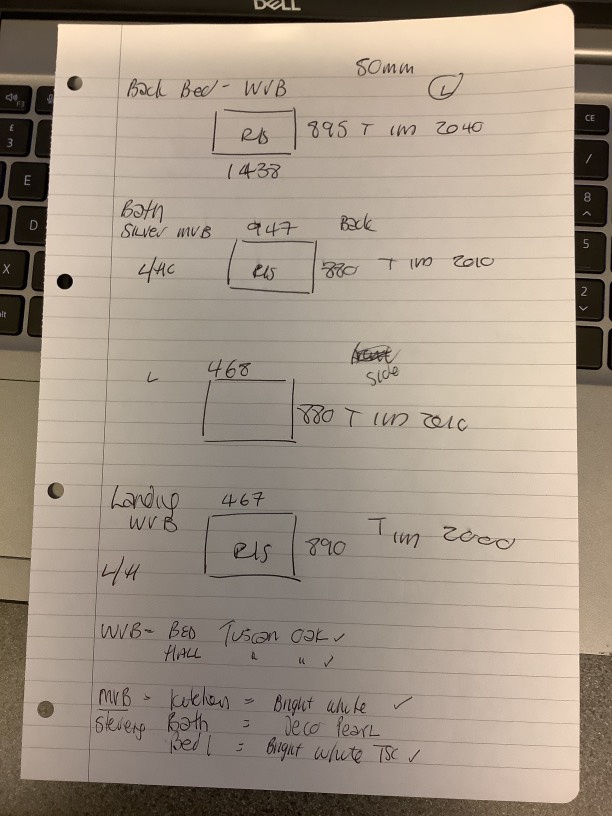 DELL
50mm
Back Bed - WVB L
RIS 895 T IM 2040
1438
Bath
Silver MVB 947 Back
L/HC RIS 880 T IM 2010
L 468
Side
880 T IM 2010
Landing 467
WVB
RIS 890 T IM 2000
L/H
WVB - BED Tuscan Oak ✓
HALL " " ✓
MVB - Kitchens = Bright white ✓
Bath = Deco Pearl
Bed 1 = Bright White TSC ✓
F3
£
3
E
D
X
CE
/
8
5
2